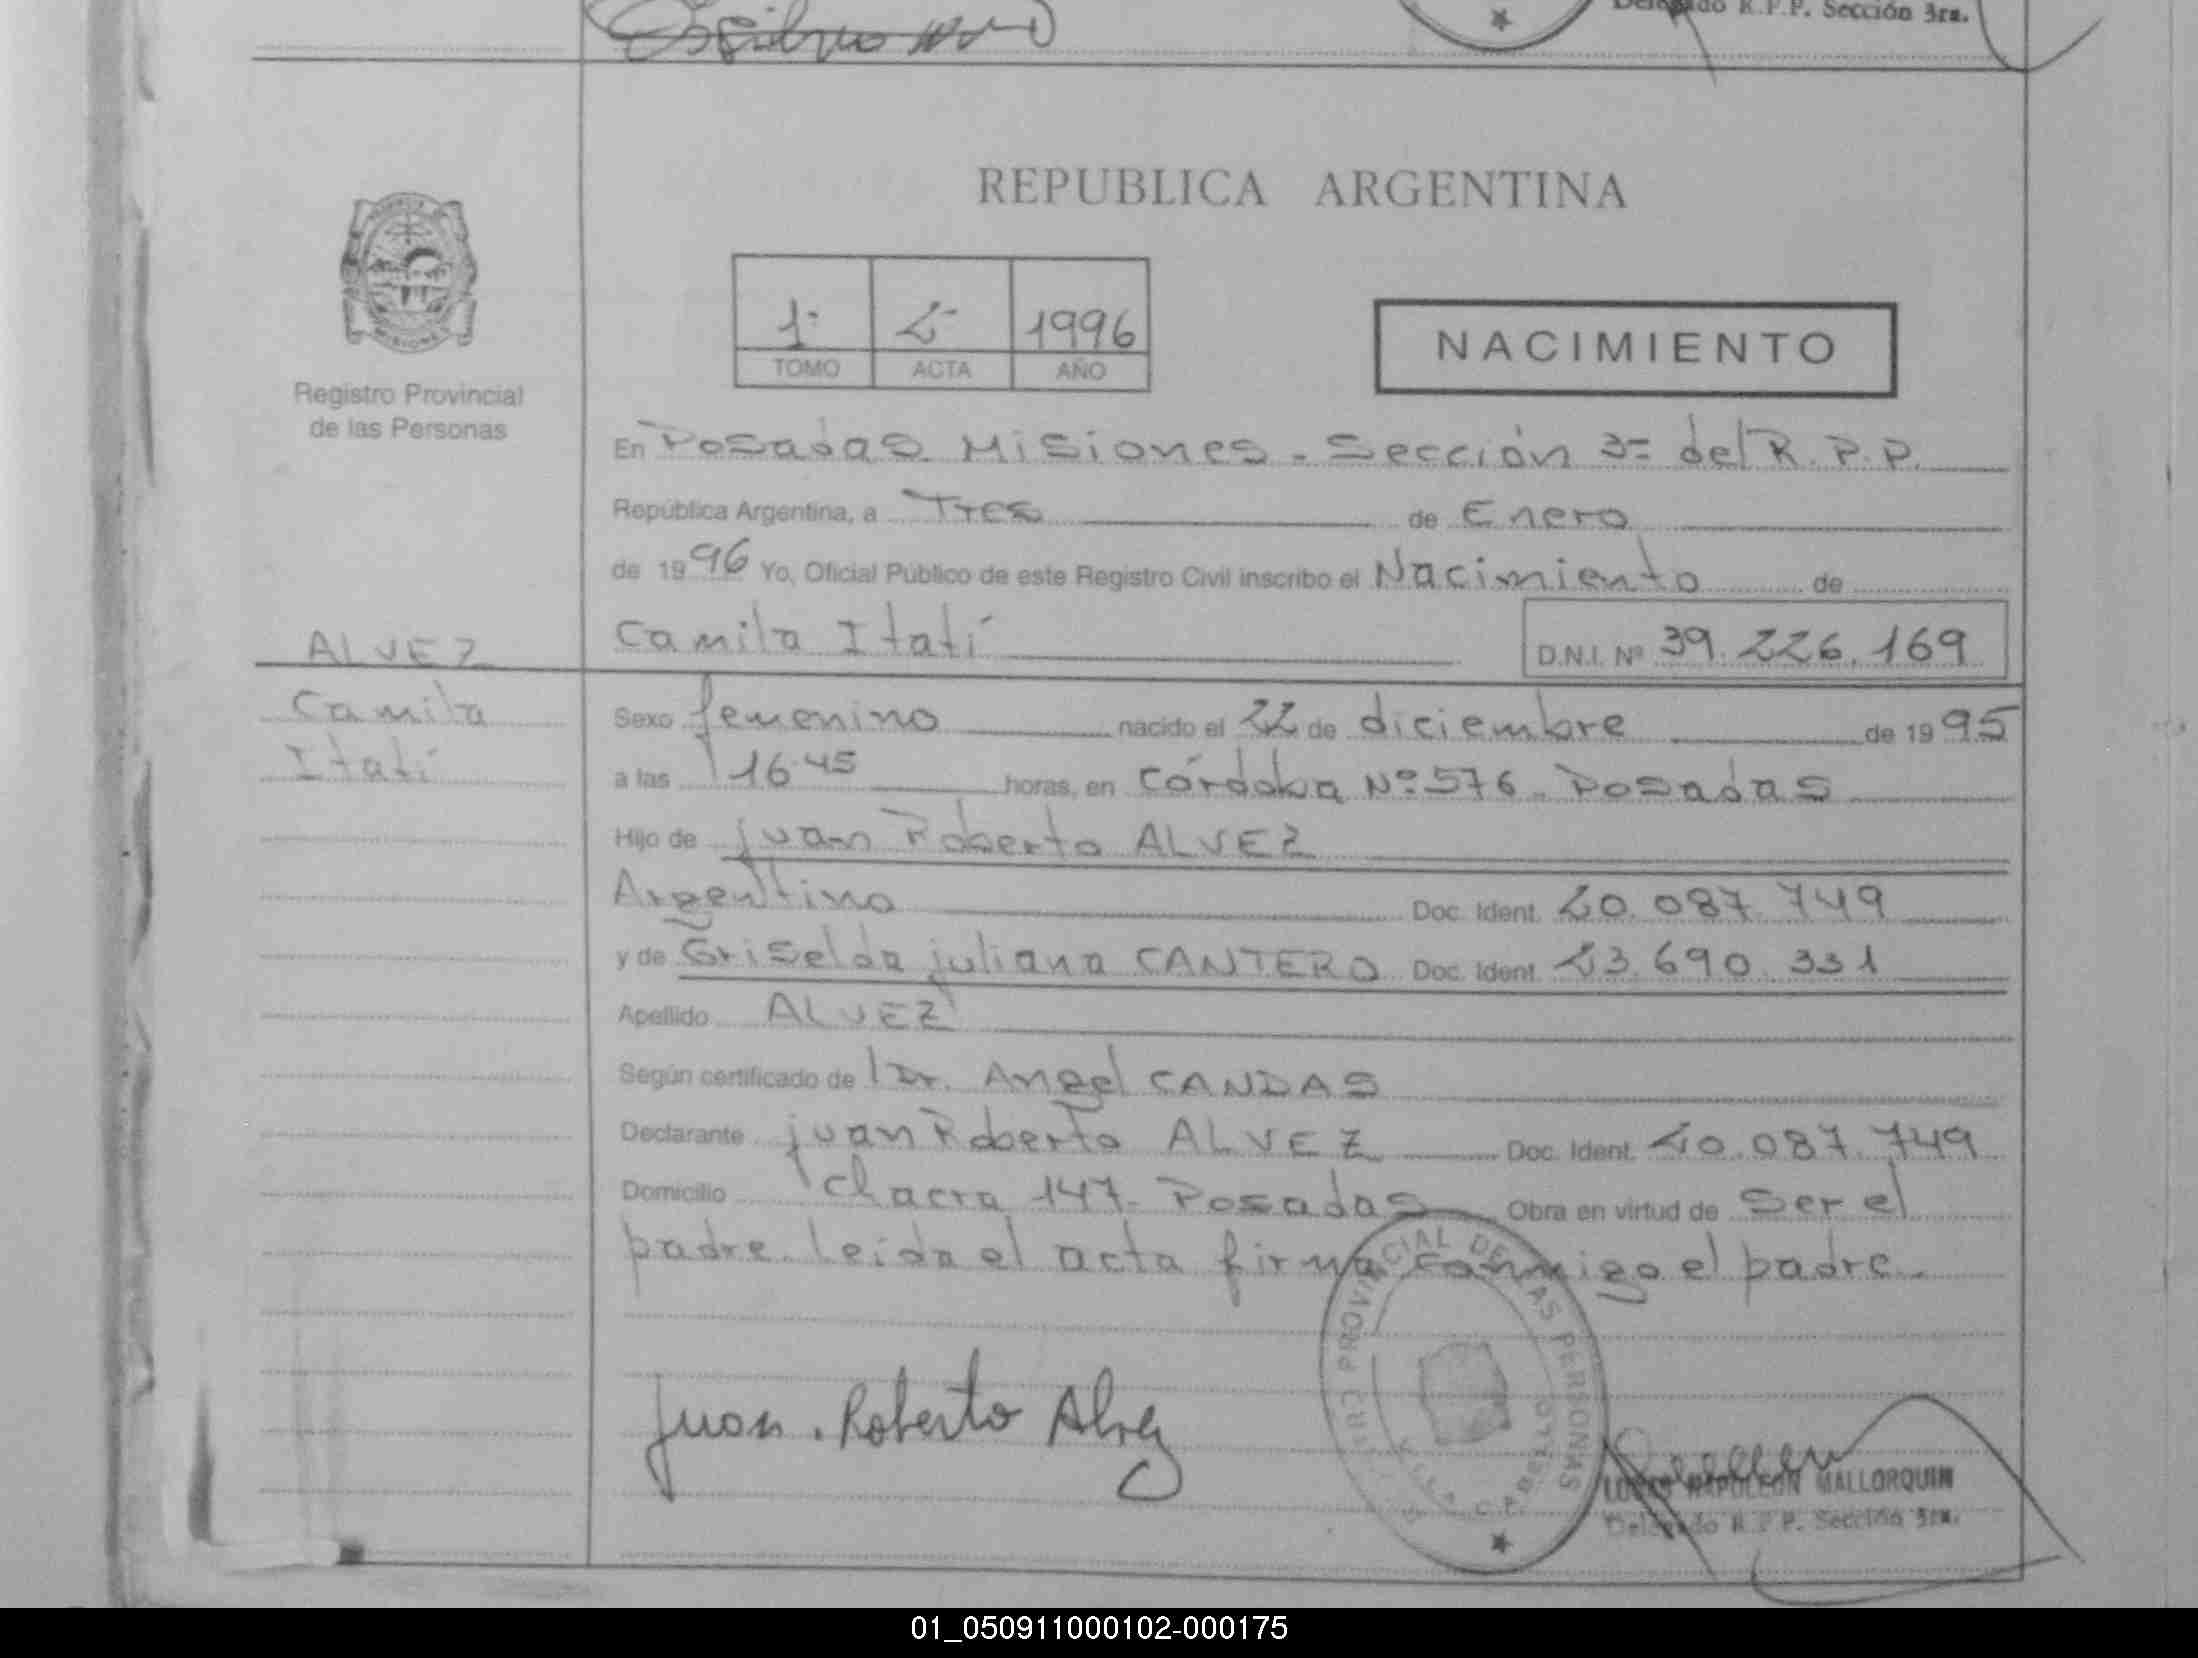 Delegado R.P.P. Sección 3ra.
REPUBLICA ARGENTINA
1- 2- 1996
TOMO ACTA AÑO
NACIMIENTO
MISIONES
Registro Provincial
de las Personas
En Posadas Misiones - Sección 3= del R.P.P.
República Argentina, a Tres de Enero
de 1996 Yo, Oficial Público de este Registro Civil inscribo el Nacimiento de
Camila Itatí D.N.I. Nº 39.226.169
ALVEZ
Camila
Itatí
Sexo femenino nacido el 22 de diciembre de 1995
a las 16 45 horas, en Córdoba Nº 576 - Posadas
Hijo de juan Roberto ALVEZ
Argentino Doc. Ident. 20.087.749
y de Griselda juliana CANTERO Doc. Ident. 23.690.331
Apellido ALVEZ
Según certificado de Dr. Angel CANDAS
Declarante juan Roberto ALVEZ Doc. Ident. 20.087.749
Domicilio Chacra 147- Posadas Obra en virtud de Ser el
padre. Leída el acta firma conmigo el padre.-
PROVINCIAL DE LAS PERSONAS
Juan. Roberto Alvez
NAPOLEON MALLORQUIN
Delegado R.P.P. Sección 3ra.
01_050911000102-000175